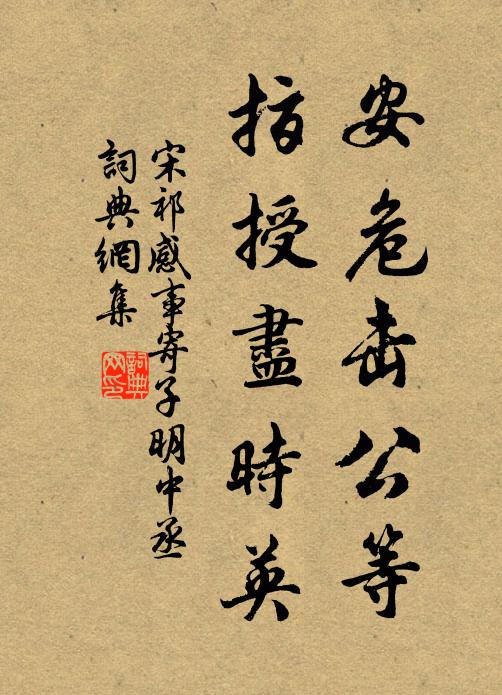 安危击公等
指授盡時英
宋祁感事寄子明中丞
詞典網集
詞典
网印